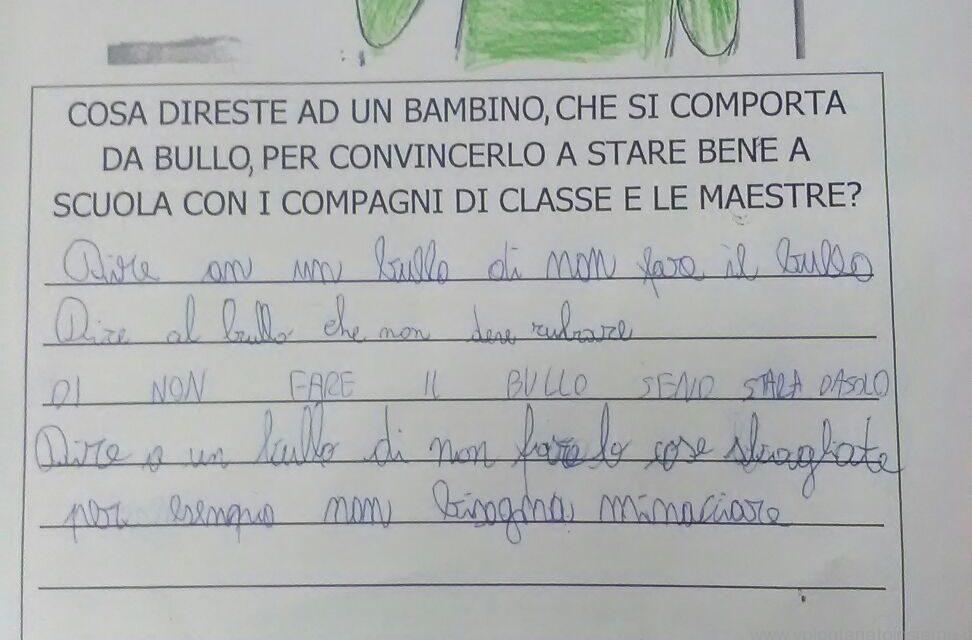 COSA DIRESTE AD UN BAMBINO, CHE SI COMPORTA
DA BULLO, PER CONVINCERLO A STARE BENE A
SCUOLA CON I COMPAGNI DI CLASSE E LE MAESTRE?
Dire an un bullo di non fare il bullo
Dire al bullo che non deve rubrare
DI NON FARE IL BULLO SENO STARA DASOLO
Dire a un bullo di non fare lo cose sbagliate
per esenpio non bisogna minacciare